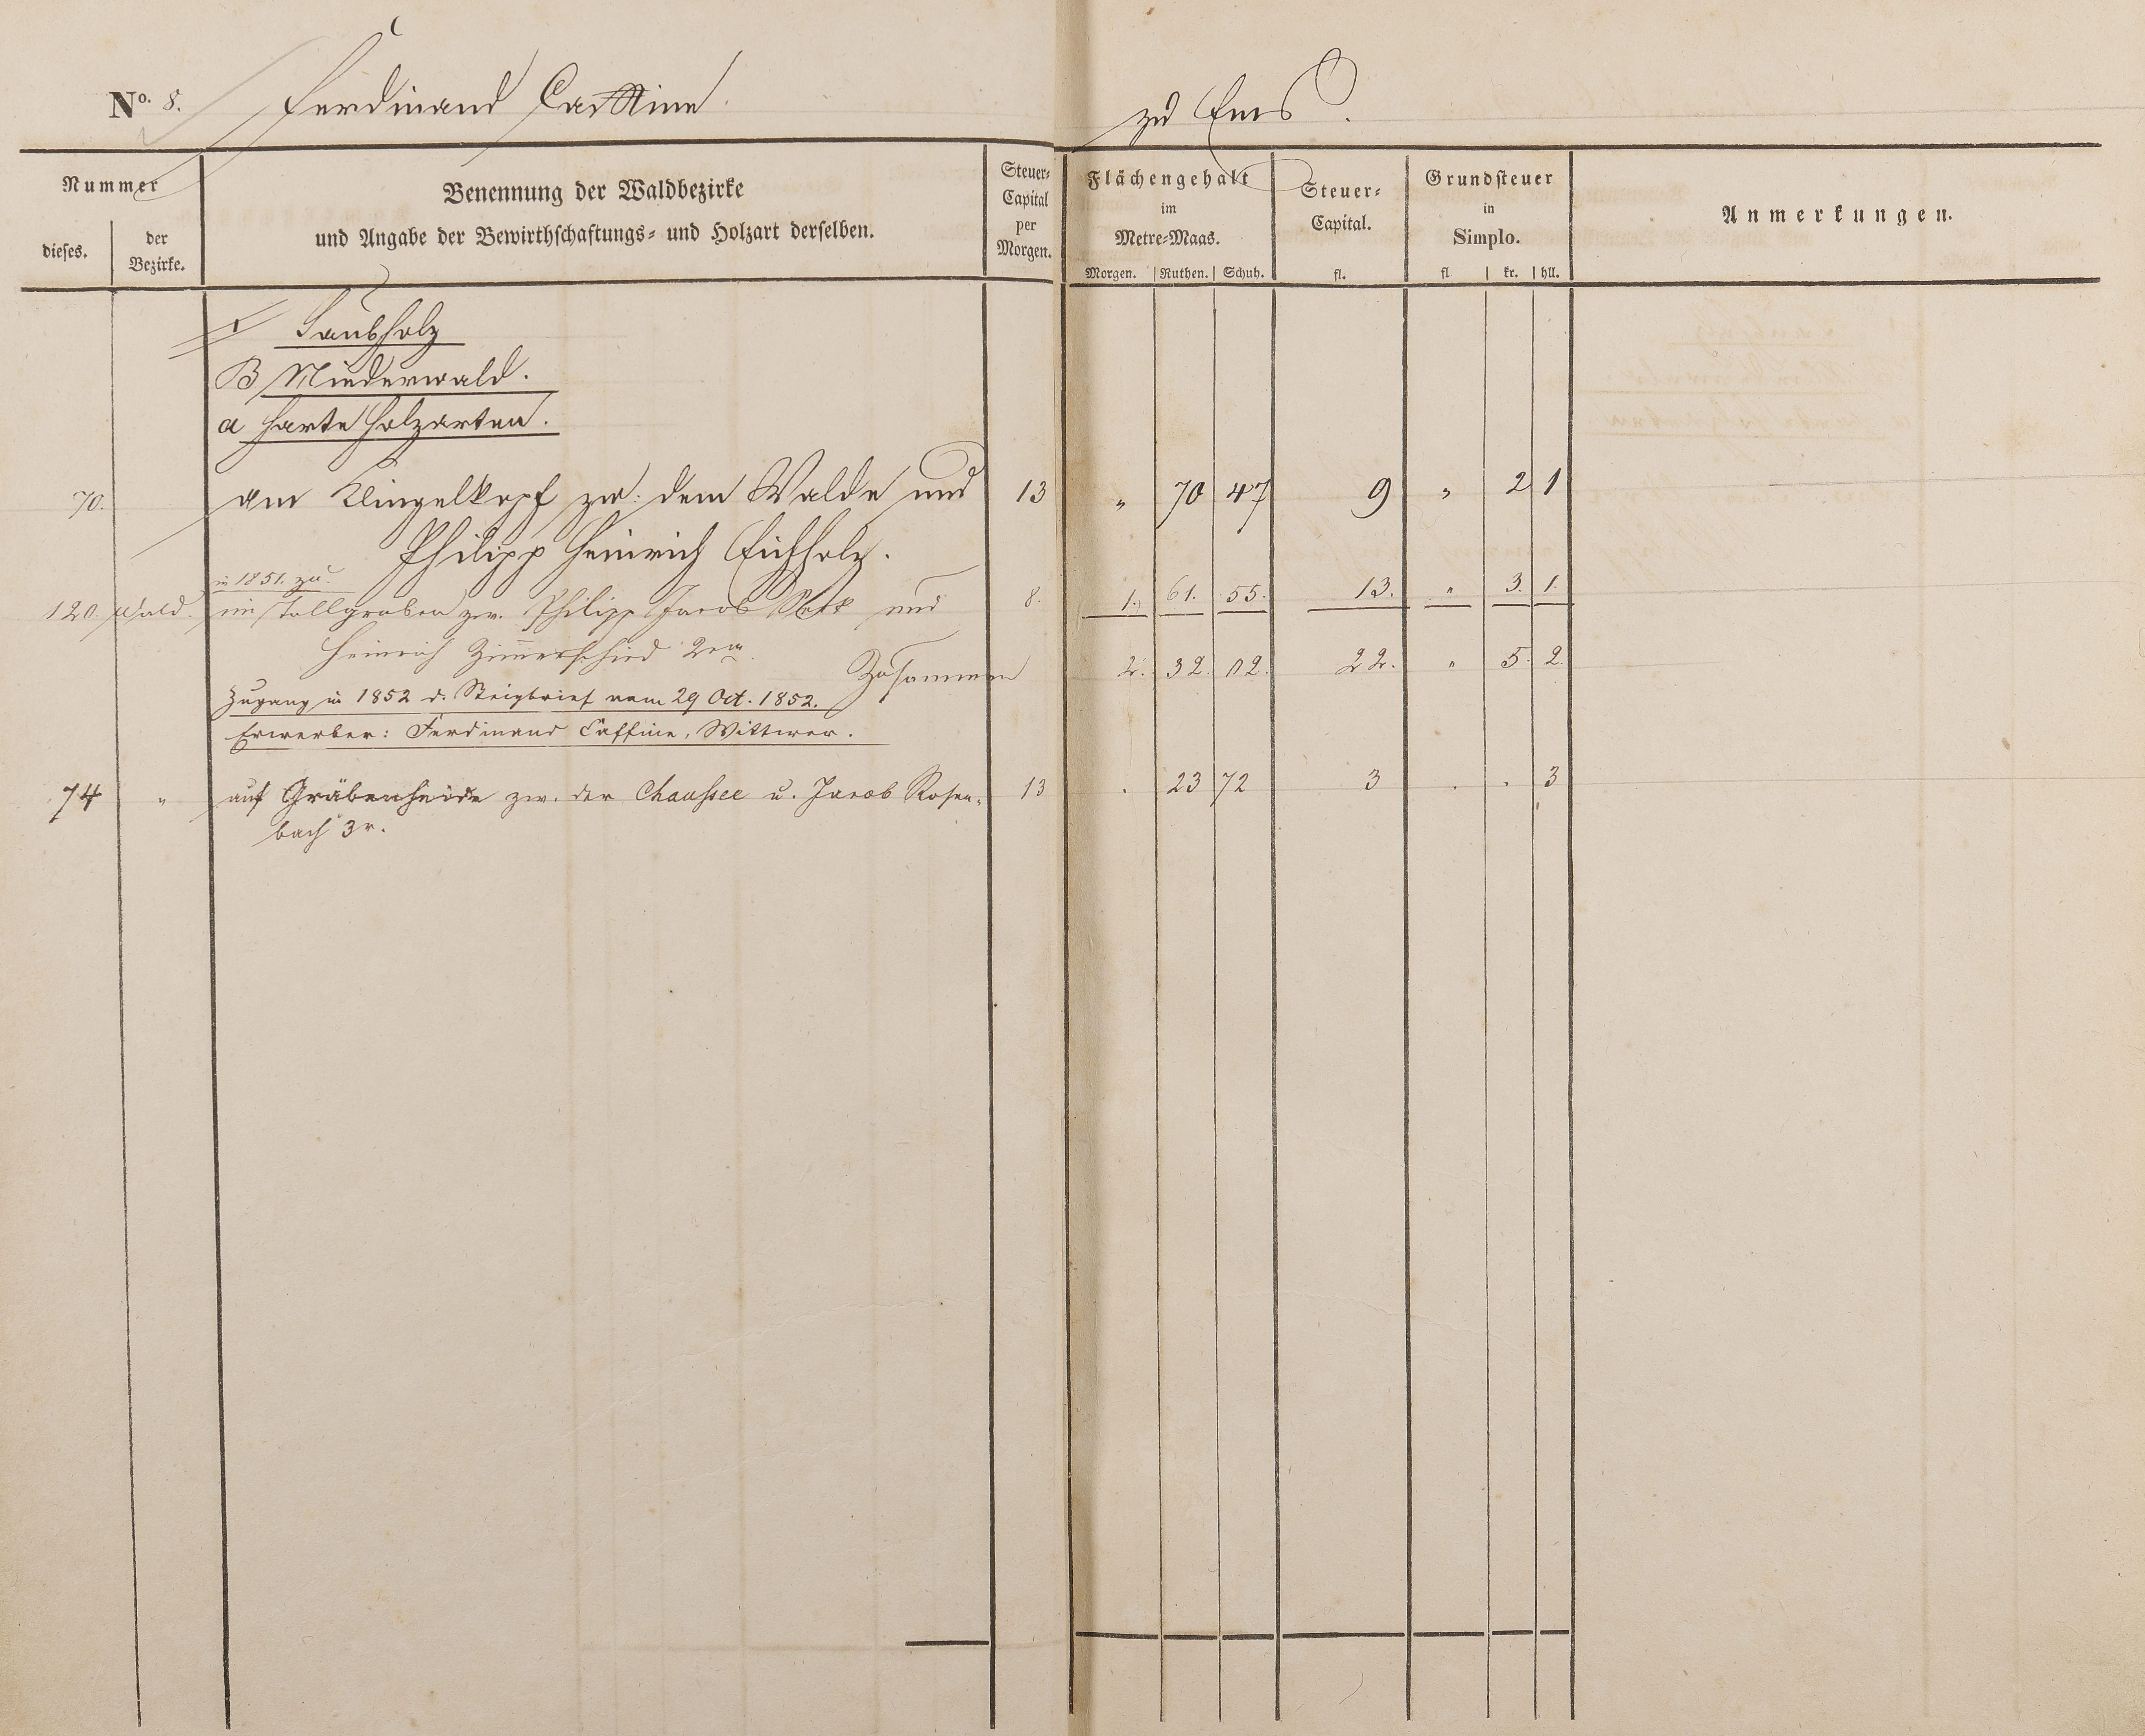 No. 8. Ferdinand Caffine zu Ems.
Nummer
dieses.
der
Bezirke.
Benennung der Waldbezirke
und Angabe der Bewirthschaftungs- und Holzart derselben.
Steuer-
Capital
per
Morgen.
Flächengehalt
im
Metre-Maas.
Morgen. Ruthen. Schuh.
Steuer-
Capital.
fl.
Grundsteuer
in
Simplo.
fl kr. hll.
Anmerkungen.
I Laubholz
B Niederwald.
a harte Holzarten.
70. am Klingelkopf zw: dem Walde und 13 " 70 47 9 " 2 1
Philipp Heinrich Eichholz.
in 1851. zu.
120. Wald. im Stollgraben zw. Philipp Jacob und 8. 1. 61. 55. 13. " 3. 1.
Heinrich Zimmerschied 2r
Zusammen 2. 32. 02. 22. " 5. 2.
Zugang in 1852 d. Steigbrief vom 29 Oct. 1852.
Erwerber: Ferdinand Caffine, Wittwer.
74 " auf Gräbenheide zw. der Chaussee u. Jacob Rosen- 13 . 23 72 3 . . 3
bach 3r.